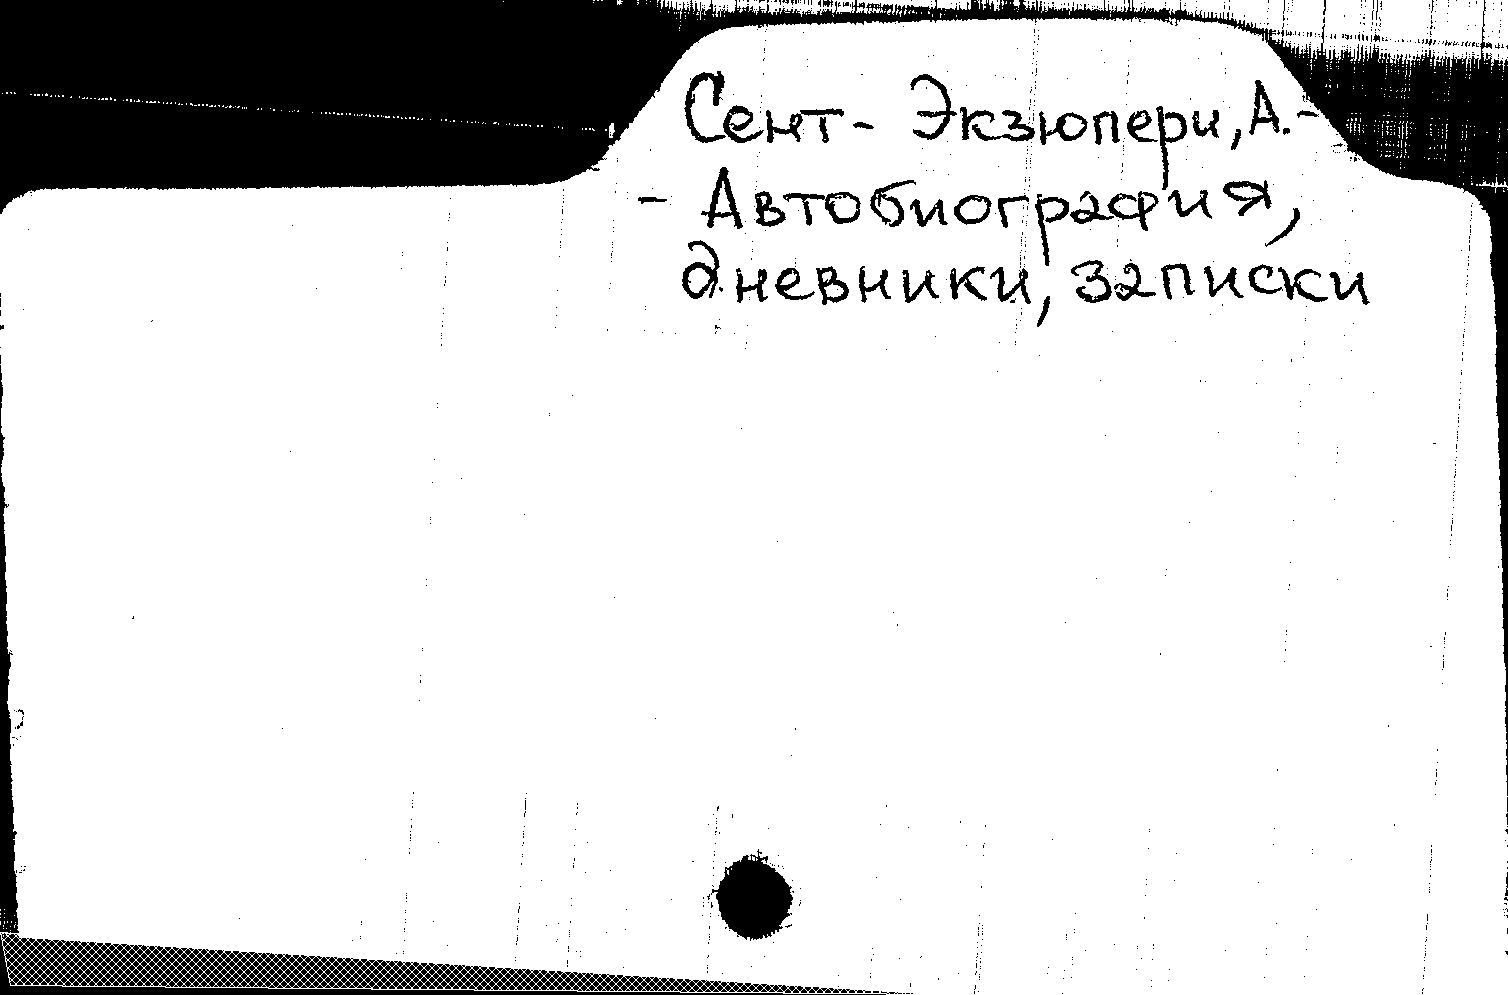 Сент-Экзюпери, А.-
- Автобиография,
дневники, записки